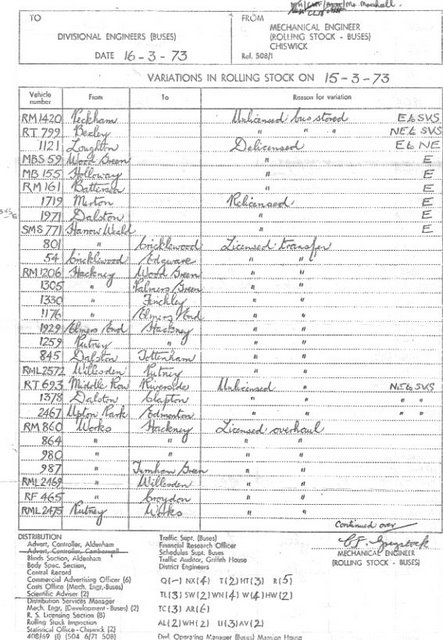 TO
DIVISIONAL ENGINEERS (BUSES)
DATE 16-3-73
FROM
MECHANICAL ENGINEER
(ROLLING STOCK - BUSES)
CHISWICK
Ref. 508/1
VARIATIONS IN ROLLING STOCK ON 15-3-73
Vehicle number From To Reason for variation
RM 1420 Peckham Unlicensed bus stored E & SVS
RT 799 Bexley " " " NE & SVS
1121 Loughton Delicensed E & NE
MBS 59 Wood Green " E
MB 155 Holloway " E
RM 161 Battersea " E
1719 Merton Relicensed E
1971 Dalston " E
SMS 771 Harrow Weald " E
801 Cricklewood Licensed transfer
54 Cricklewood Edgware " "
RM 1206 Hackney Wood Green " "
1305 " Palmers Green " "
1330 " Finchley " "
1176 " Elmers End " "
1929 Elmers End Hackney " "
1259 Putney " " "
845 Dalston Tottenham " "
RML 2572 Willesden Putney " "
RT 693 Middle Row Riverside Unlicensed " NE & SVS
1378 Dalston Clapton " " " "
2467 Upton Park Edmonton " " " "
RM 860 Works Hackney Licensed overhaul
864 " " " "
980 " " " "
987 " Turnham Green " "
RML 2469 " Willesden " "
RF 465 " Croydon " "
RML 2475 Putney Works " "
Continued over
MECHANICAL ENGINEER
(ROLLING STOCK - BUSES)
DISTRIBUTION
Advert. Controller, Aldenham
Advert. Controller, Camberwell
Bldings Section, Aldenham
Body Spec. Section,
Central Record
Commercial Advertising Officer (6)
Costs Office (Mech. Engr.-Buses)
Scientific Adviser (2)
Distribution Services Manager
Mech. Engr. (Development - Buses) (2)
R. S. Licensing Section (8)
Rolling Stock Inspection
Statistical Office - Chiswick (2)
408/69 (1) (504 6/71 508)
Traffic Supt. (Buses)
Financial Research Officer
Schedules Supt. Buses
Traffic Auditor, Griffith House
District Engineers
Q(-) NX(4) T(2) HT(3) R(5)
TL(3) SW(2) WN(4) W(4) HW(2)
TC(3) AR(6)
AL(2) WH(2) U(3) AV(2)
Divl. Operating Manager (Buses) Manion House